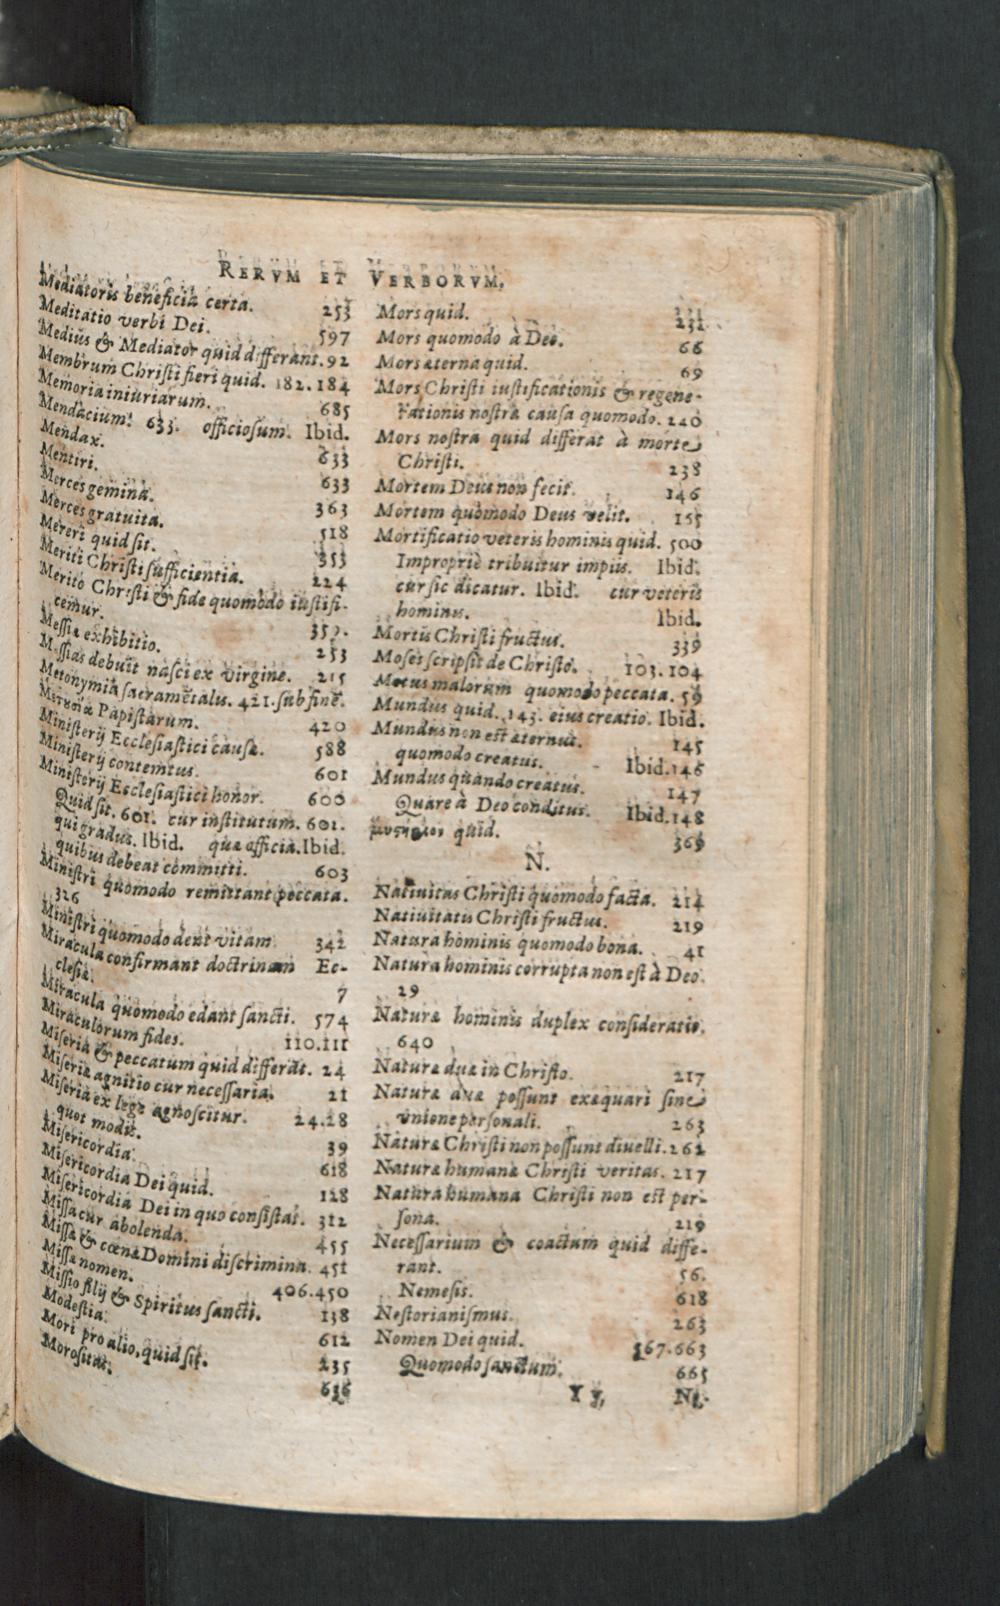 RERVM ET VERBORVM.
Mediatoris beneficia certa. 253
Meditatio verbi Dei. 597
Medius & Mediator quid differant. 92
Membrum Christi fieri quid. 182.184
Memoria iniuriarum. 685
Mendacium. 633. officiosum. Ibid.
Mendax. 633
Mentiri. 633
Merces gemina. 363
Merces gratuita. 518
Mereri quid sit. 353
Meriti Christi sufficientia. 224
Merito Christi & fide quomodo iustifi-
cemur.
Messiæ exhibitio. 253
Messias debuit nasci ex virgine. 215
Metonymia sacramētalis. 421. sub finē.
Papistarum. 420
Ministerij Ecclesiastici causæ. 588
Ministerij contemtus. 601
Ministerij Ecclesiastici honor. 600
Quid sit. 601. cur institutum. 601.
qui gradus. Ibid. quæ officia. Ibid.
quibus debeat committi. 603
Ministri quomodo remittant peccata.
326
Ministri quomodo dent vitam. 342
Miracula confirmant doctrinam Ec-
clesiæ. 7
Miracula quomodo edant sancti. 574
Miraculorum fides. 110.111
Miseria & peccatum quid differāt. 24
Miseriæ agnitio cur necessaria. 21
Miseria ex lege agnoscitur. 24.28
quot modis. 39
Misericordia. 618
Misericordia Dei quid. 128
Misericordia Dei in quo consistat. 312
Missa cur abolenda. 455
Missæ & cœnæ Domini discrimina. 451
Missæ nomen. 406.450
Missio filij & Spiritus sancti. 138
Modestia. 612
Mori pro alio, quid sit. 235
Morositas. 636
Mors quid. 231
Mors quomodo à Deo. 66
Mors æterna quid. 69
Mors Christi iustificationis & regene-
rationis nostræ causa quomodo. 240
Mors nostra quid differat à morte
Christi. 238
Mortem Deus non fecit. 146
Mortem quomodo Deus velit. 155
Mortificatio veteris hominis quid. 500
Impropriè tribuitur impiis. Ibid.
cur sic dicatur. Ibid. cur veteris
hominis. Ibid.
Mortis Christi fructus. 339
Moses scripsit de Christo. 103.104
Motus malorum quomodo peccata. 59
Mundus quid. 143. eius creatio. Ibid.
Mundus non est æternus. 145
quomodo creatus. Ibid. 146
Mundus quando creatus. 147
Quare à Deo conditus. Ibid. 148
quid. 369
N.
Natiuitas Christi quomodo facta. 214
Natiuitatis Christi fructus. 219
Natura hominis quomodo bona. 41
Natura hominis corrupta non est à Deo.
29
Naturæ hominis duplex consideratio.
640
Naturæ duæ in Christo. 217
Naturæ duæ possunt exæquari sine
vnione personali. 263
Naturæ Christi non possunt diuelli. 262
Naturæ humanæ Christi veritas. 217
Natura humana Christi non est per-
sona. 219
Necessarium & coactum quid diffe-
rant. 56.
Nemesis. 618
Nestorianismus. 263
Nomen Dei quid. 567.663
Quomodo sanctum. 665
Y y,